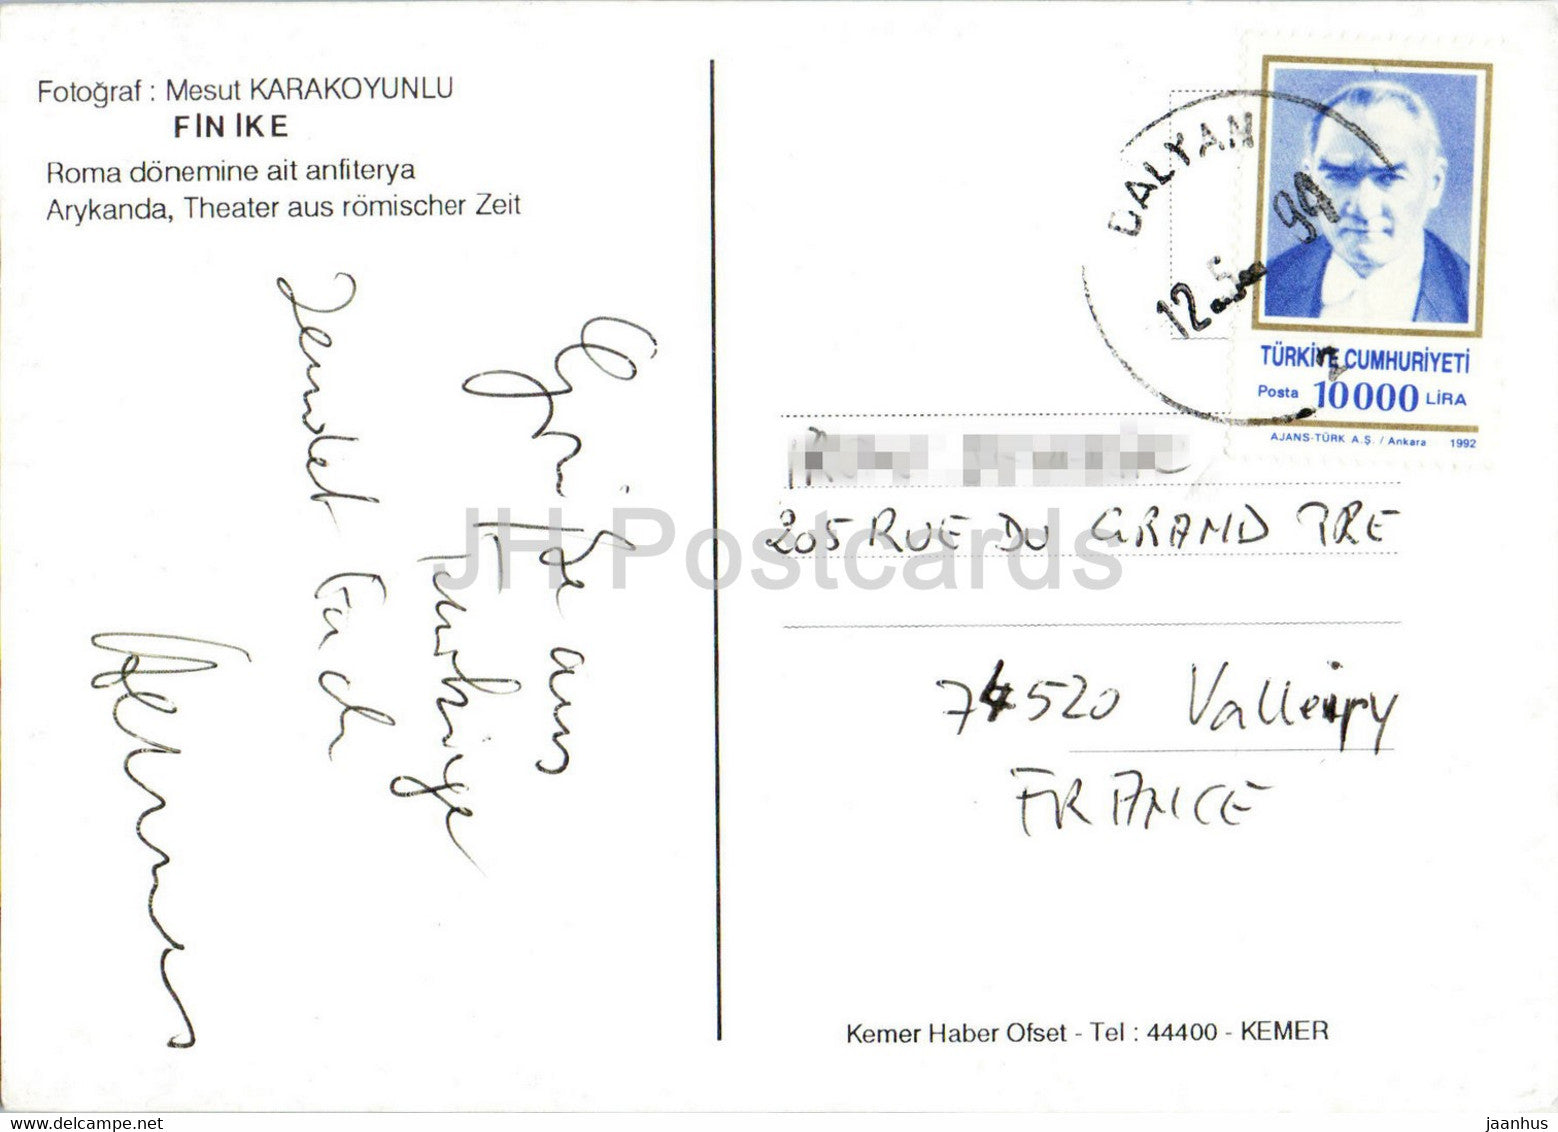 Fotoğraf : Mesut KARAKOYUNLU
FİNİKE
Roma dönemine ait anfiterya
Arykanda, Theater aus römischer Zeit
Grüße aus
Turkiye
sendet Euch
DALYAN
12.5. 94
TÜRKİYE CUMHURİYETİ
Posta 10000 LİRA
AJANS-TÜRK A.Ş. / Ankara 1992
205 RUE DU GRAND PRE
74520 Valleiry
FRANCE
Kemer Haber Ofset - Tel : 44400 - KEMER
JH Postcards
www.delcampe.net
jaanhus